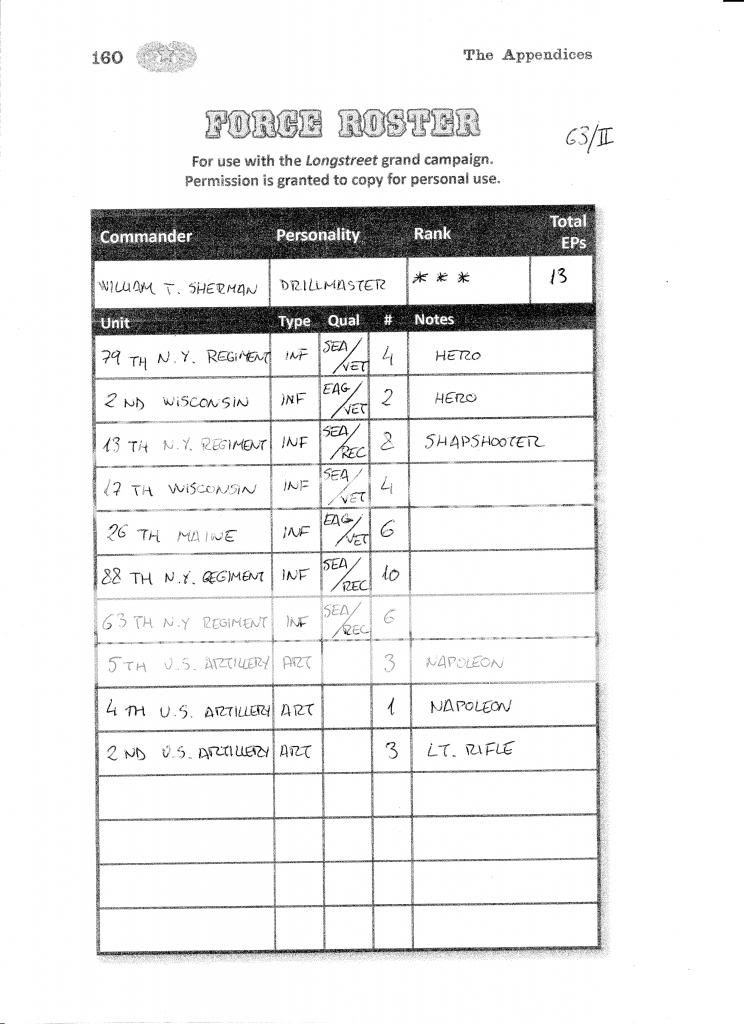 160 The Appendices
FORCE ROSTER
63/II
For use with the Longstreet grand campaign.
Permission is granted to copy for personal use.
Commander Personality Rank Total EPs
WILLIAM T. SHERMAN DRILLMASTER * * * 13
Unit Type Qual # Notes
79 TH N.Y. REGIMENT INF SEA/VET 4 HERO
2 ND WISCONSIN INF EAG/VET 2 HERO
13 TH N.Y. REGIMENT INF SEA/REC 2 SHAPSHOOTER
17 TH WISCONSIN INF SEA/VET 4
26 TH MAINE INF EAG/VET 6
88 TH N.Y. REGIMENT INF SEA/REC 10
63 TH N.Y REGIMENT INF SEA/REC 6
5 TH U.S. ARTILLERY ART 3 NAPOLEON
4 TH U.S. ARTILLERY ART 1 NAPOLEON
2 ND U.S. ARTILLERY ART 3 LT. RIFLE